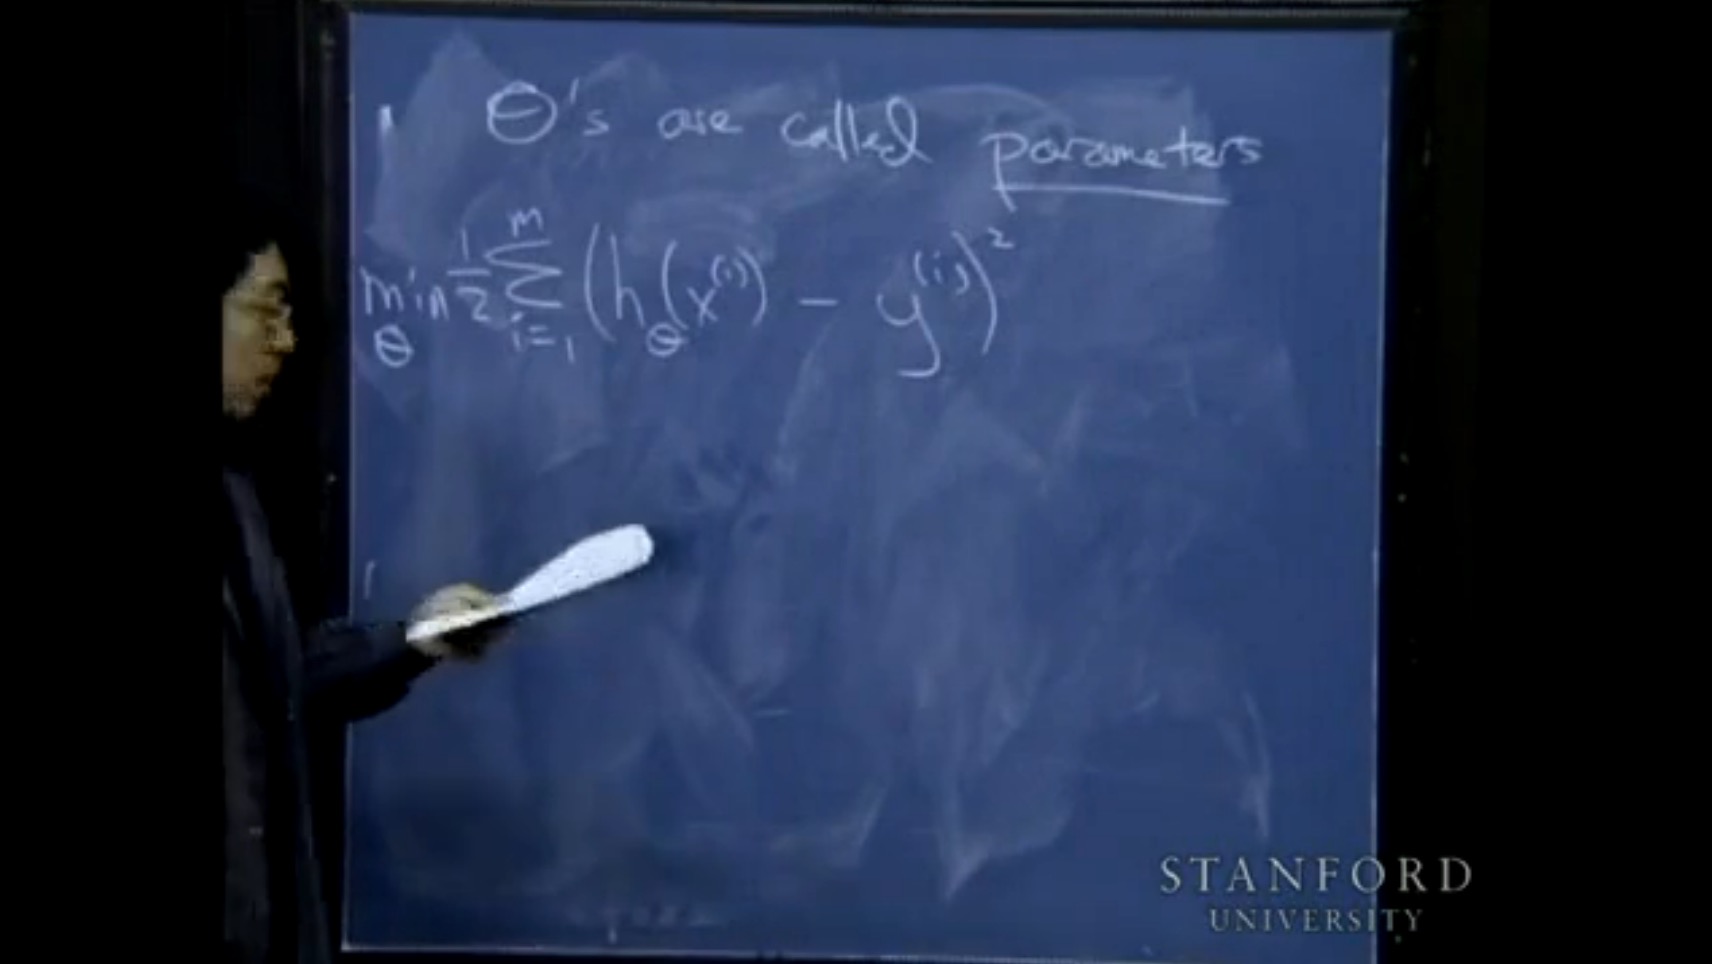 θ's are called parameters
min θ 1/2 Σ i=1 m (h θ (x^(i)) − y^(i))²
STANFORD
UNIVERSITY